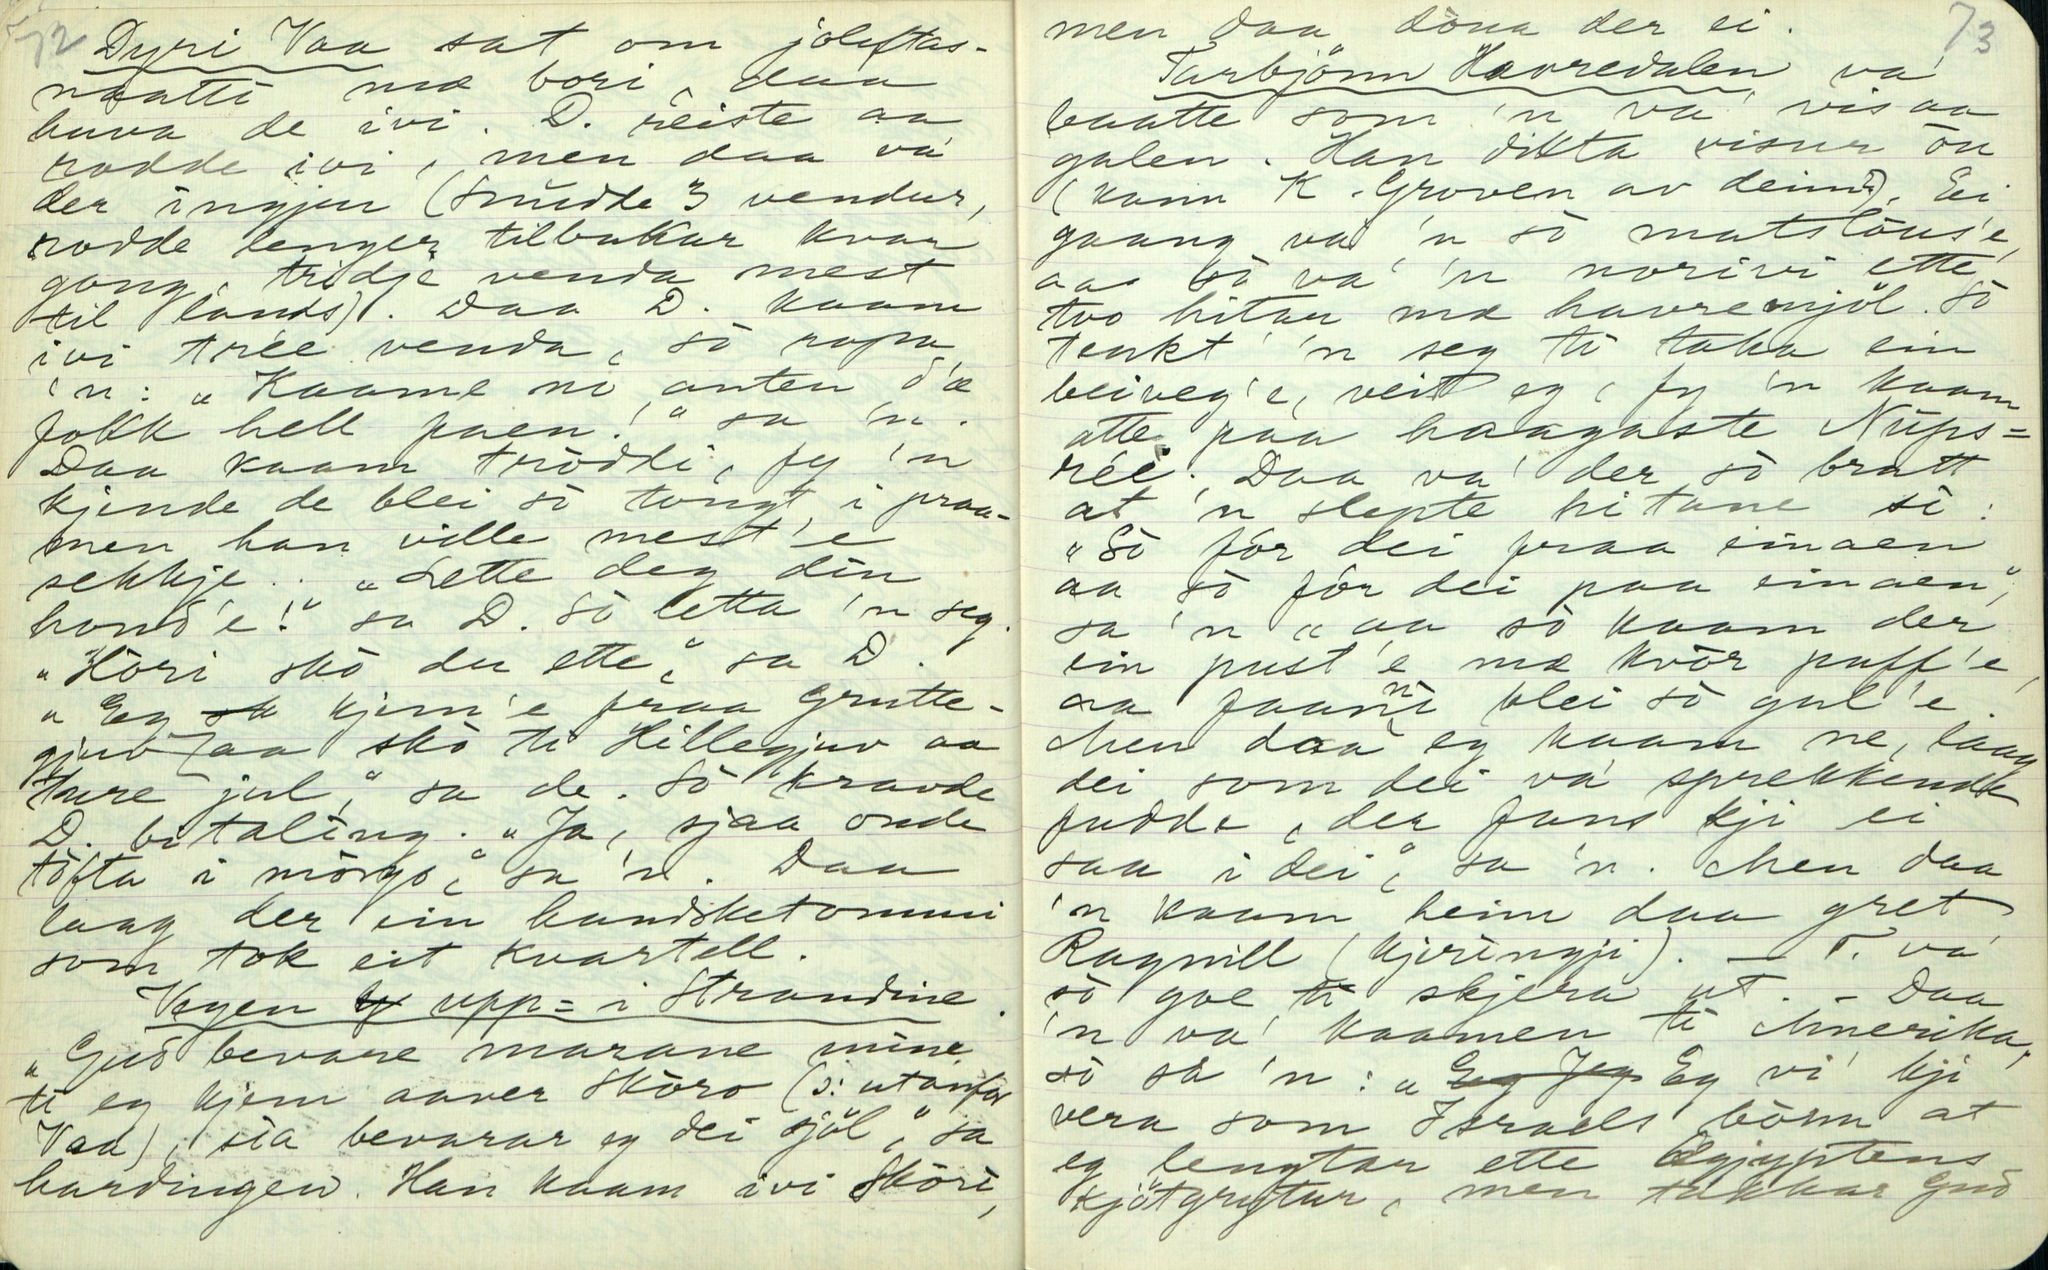 72
Dyri Vaa sat om joleftas-
naatti mæ bori, daa
huva de ivi. D. reiste aa
rodde ivi, men daa va'
der ingjen (snudde 3 vendur,
rodde lenger tilbakar kvar
gong, tridje venda mest
til lands). Daa D. kaam
ivi trée venda, sò ropa
'n: „Kaame no anten d'æ
folk hell faen!" sa 'n.
Daa kaam tròddi, fy 'n
kjende de blei sò tongt i praa-
men han ville mest'e
sekkje. „Lette deg din
hond'e!" sa D. Sò letta 'n seg.
„Hòri skò du ette," sa D.
„Eg kjem'e fraa Grutte-
gjuv aa skò ti Hillegjuv aa
ture jul," sa de. Sò kravde
D. bitaling. „Ja, sjaa onde
tòfta i mòrgo," sa 'n. Daa
laag der ein handsketommi
som tok eit kvartell.
Vegen upp= i Strandine.
„Gud bevare marane mine
ti eg kjem aaver Skòro (ɔ: utanfor
Vaa), sia bevarar eg dei sjòl," sa
hardingen. Han kaam ivi Skòri,
73
men daa dòna der ei.
Tarbjönn Havredalen va'
baatte som 'n va' vis aa
galen. Han dikta visur òn
(kann K. Groven av deim?). Ei
gaang va' 'n sò matslòus'e,
aa sò va' 'n norivi ette
tvo hitar mæ havremjöl. Sò
tenkt' 'n seg ti taka ein
beiveg'e, veit eg, fy 'n kaam
atte paa haagaste Nups=
réi. Daa va' der sò bratt
at 'n slepte hitane si:
„Sò fór dei fraa einaen
aa sò fór dei paa einaen",
sa 'n „aa sò kaam der
ein pust'e mæ kvòr puff'e,
aa faanni blei sò gul'e.
Men daa eg kaam ne, laag
dei som dei va' sprekkende
fudde, der fans kji ei
saa i dei," sa 'n. Men daa
'n kaam heim daa gret
Ragnill (kjeringji). — T. va'
sò goe ti skjera ut. – Daa
'n va' kaamen ti Amerika,
sò sa 'n: „Eg Jeg Eg vi' kji
vera som Israels bònn at
eg lengtar ette Ægyptens
kjötgrytur, men takkar Gud